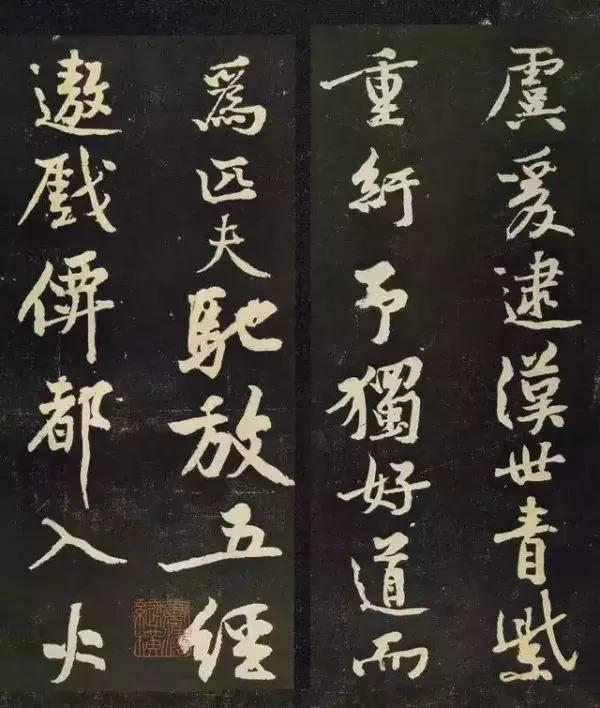 虞爰逮漢世青紫
重紆予獨好道而
爲匹夫馳放五經
遨戲僊都入火